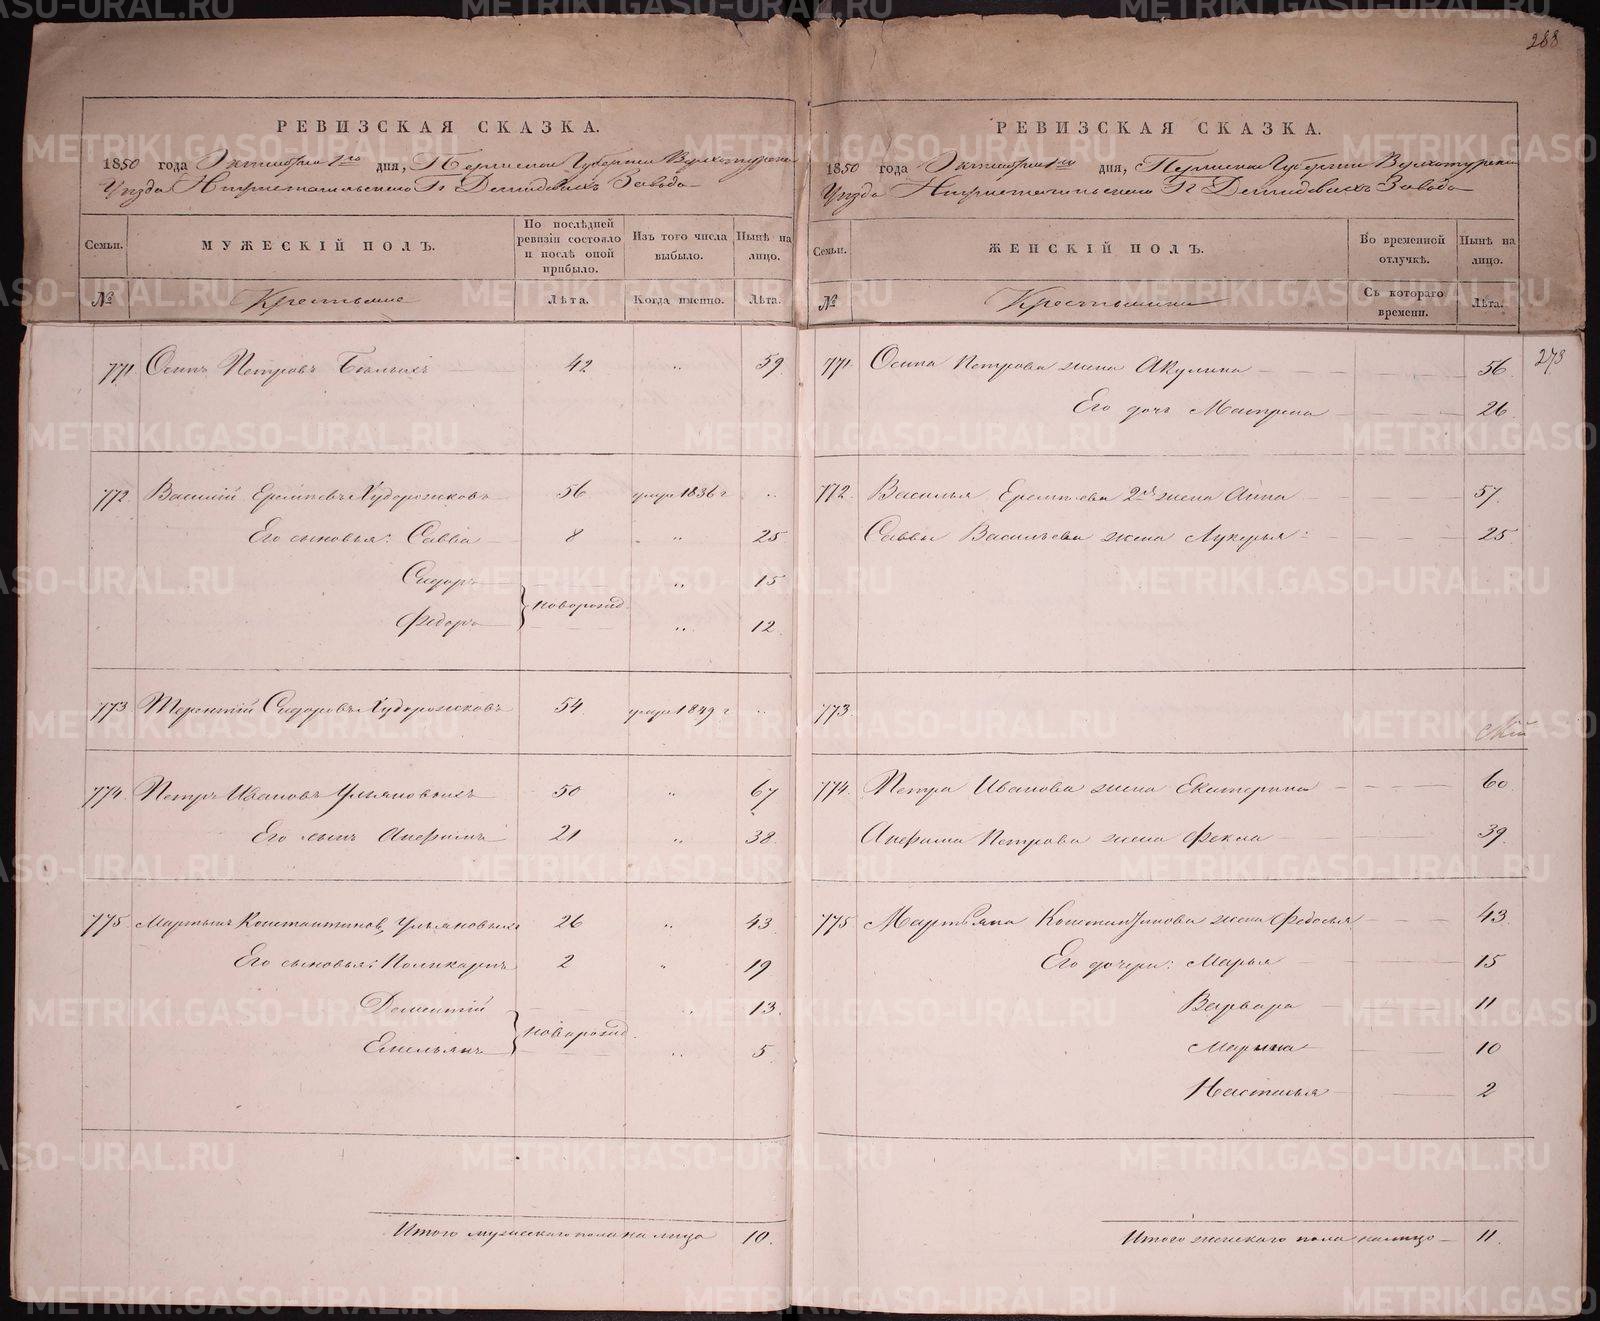 288
РЕВИЗСКАЯ СКАЗКА.
1850 года Октября 1го дня, Пермской Губернии Верхотурскаго
Уѣзда Нижнетагильскаго Гг Демидовыхъ Завода
Семьи. МУЖЕСКІЙ ПОЛЪ. По послѣдней ревизіи состояло и послѣ оной прибыло. Изъ того числа выбыло. Нынѣ на лицо.
№ Крестьяне Лѣта. Когда именно. Лѣта.
771 Осипъ Петровъ 42 " 59
772. Василій Еремѣевъ Худорожковъ 56 умре 1836 г "
Его сыновья: Савва 8 " 25
Сидоръ новорожд. " 15
Федоръ " 12
773 Терентій Сидоровъ Худорожковъ 54 умре 1849 г "
774. Петръ Ивановъ Ульяновыхъ 50 " 67
Его сынъ Анефимъ 21 " 38
775 Мартынъ Константиновъ Ульяновыхъ 26 " 43
Его сыновья: Поликарпъ 2 " 19
Дементій новорожд. " 13.
Емельянъ " 5
Итого мужескаго пола на лицо 10.
РЕВИЗСКАЯ СКАЗКА.
1850 года Октября 1го дня, Пермской Губерніи Верхотурскаго
Уѣзда Нижнетагильскаго Гг Демидовыхъ Завода
Семьи. ЖЕНСКІЙ ПОЛЪ. Во временной отлучкѣ. Нынѣ на лицо.
№ Крестьянки Съ котораго времени. Лѣта.
273
771 Осипа Петрова жена Акулина 56
Его дочь Матрена 26
772. Василья Еремѣева 2я жена Анна 57
Саввы Васильева жена Лукерья 25
773
774. Петра Иванова жена Екатерина 60
Анефима Петрова жена Фекла 39
775 Мартьяна Константинова жена Федосья 43
Его дочери: Марья 15
Варвара 11
Марина 10
Настасья 2
Итого женскаго пола налицо 11.
METRIKI.GASO-URAL.RU